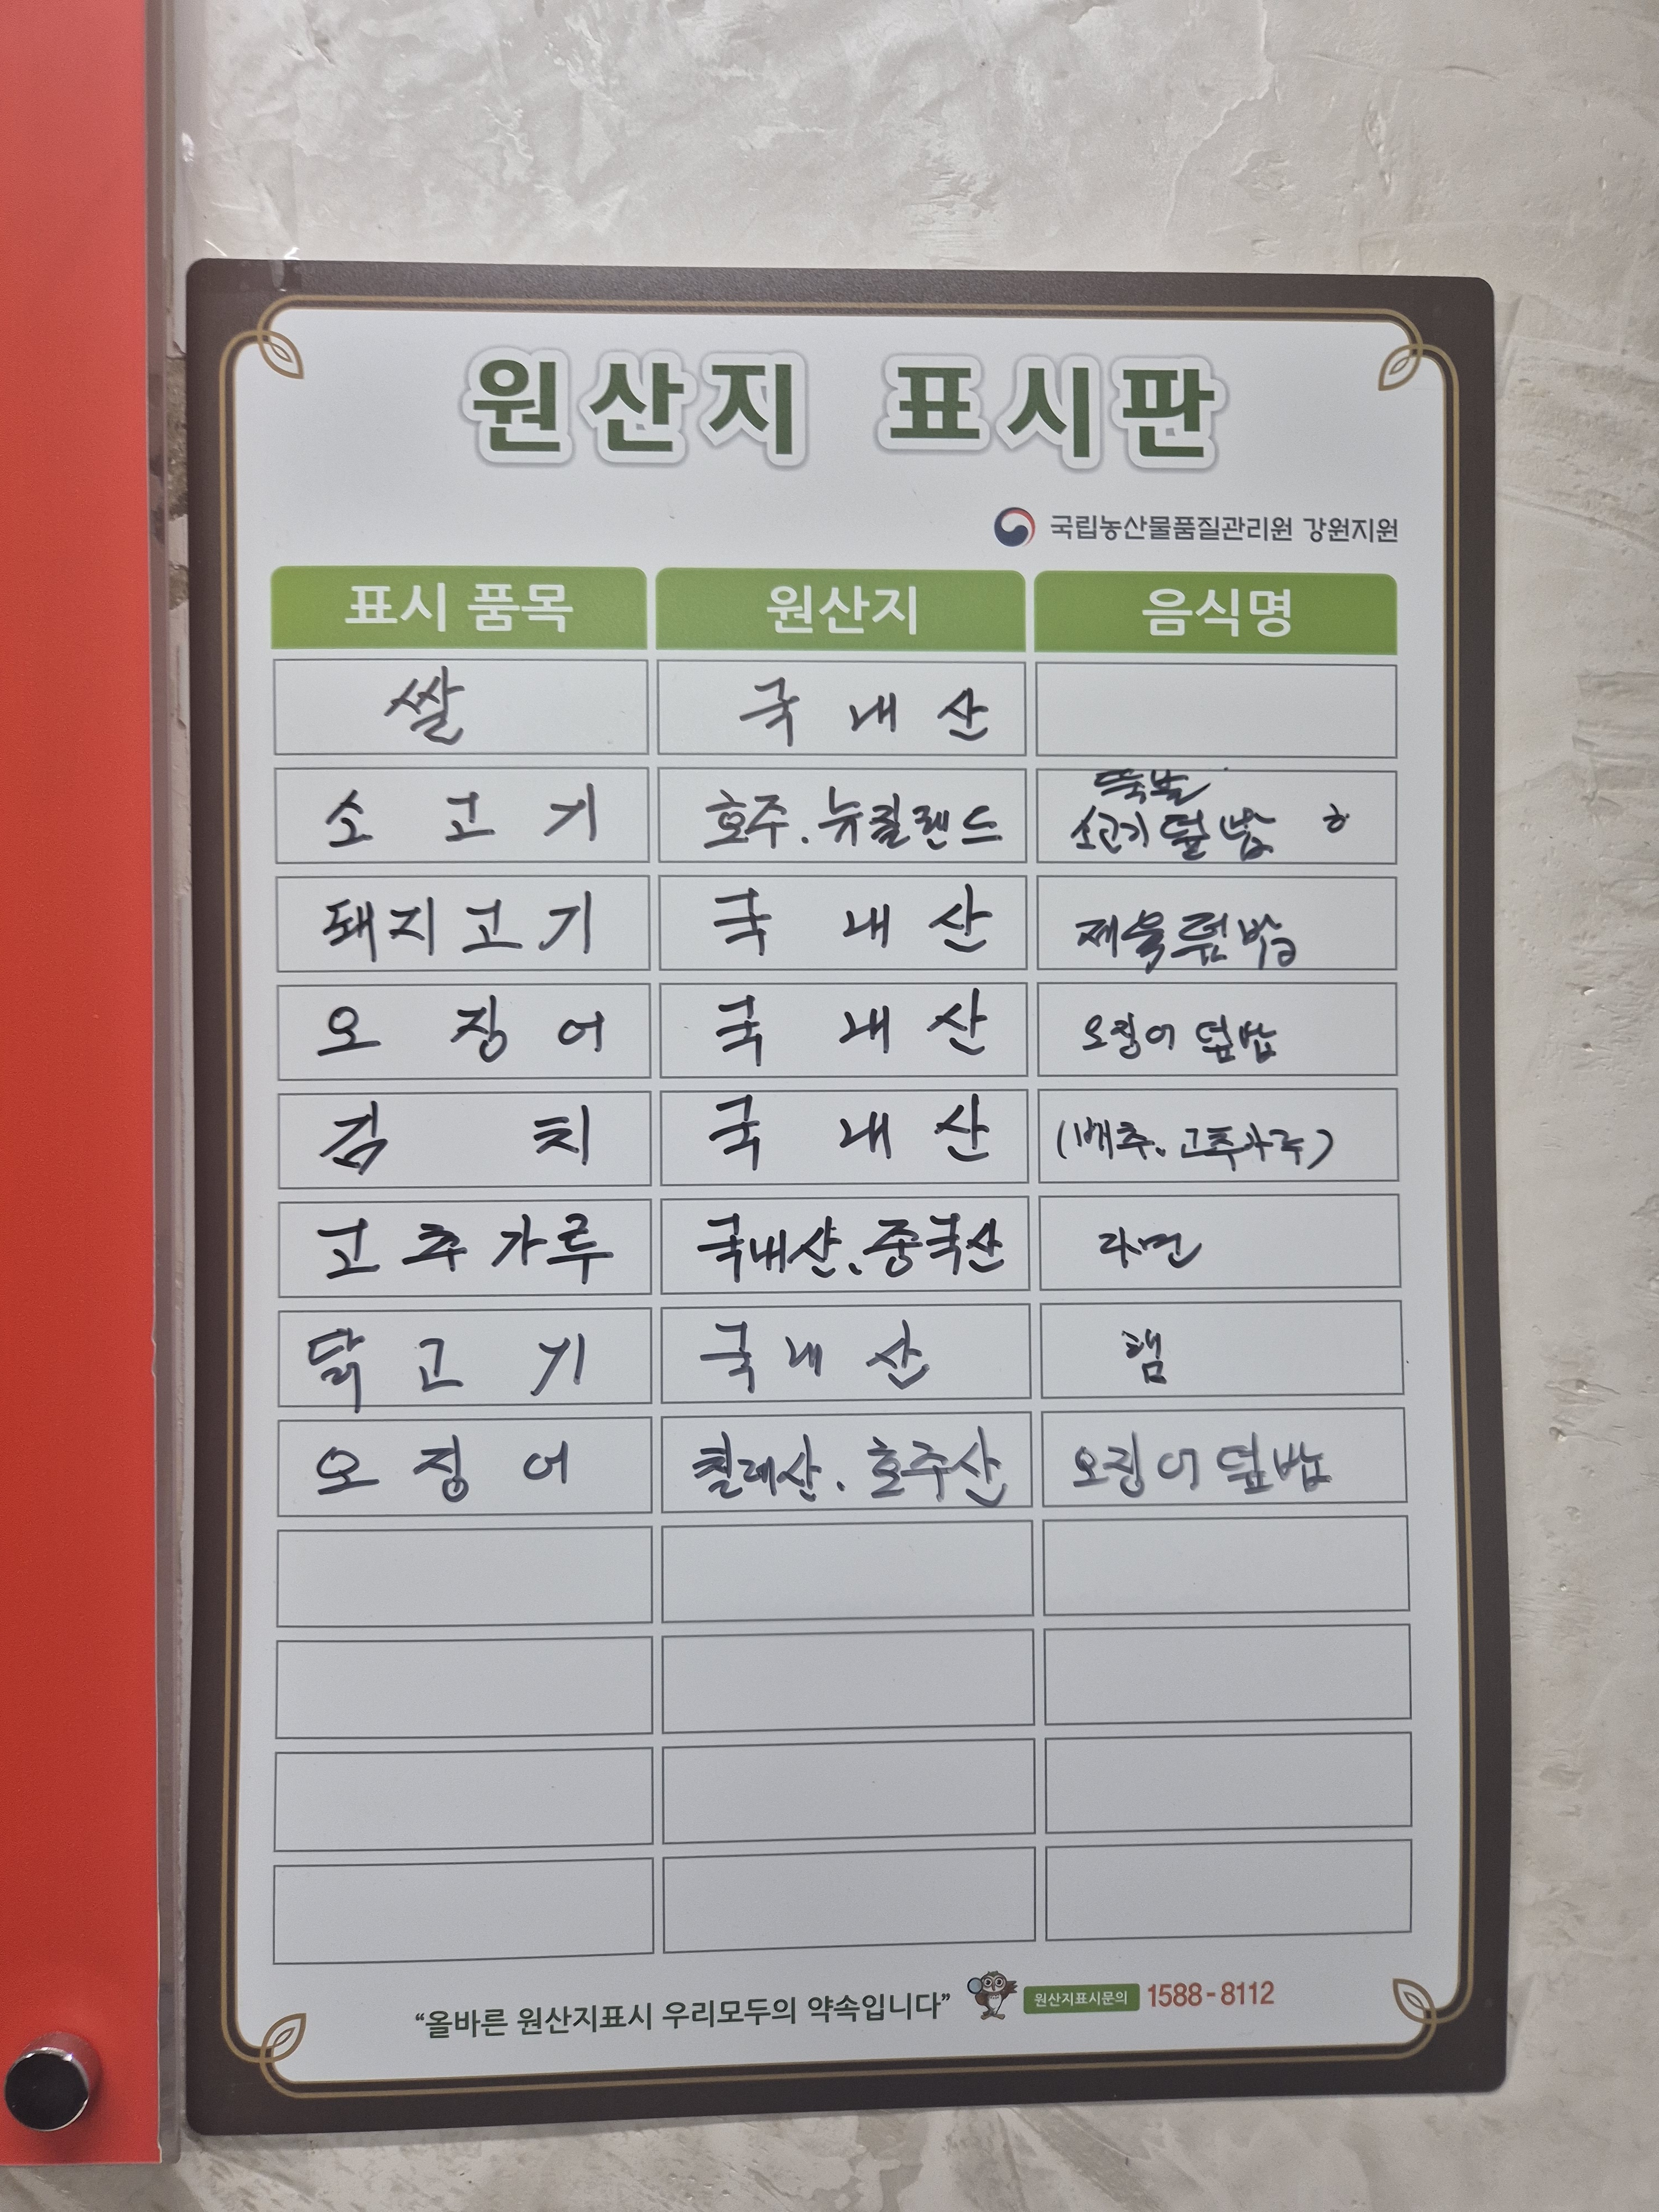 원산지 표시판
국립농산물품질관리원 강원지원
표시 품목 원산지 음식명
쌀 국 내 산
뚝불
소 고 기 호주. 뉴질랜드 소고기 덮밥
돼지고기 국 내 산 제육덮밥
오 징 어 국 내 산 오징어 덮밥
김 치 국 내 산 (배추. 고추가루)
고추가루 국내산. 중국산 라면
닭 고 기 국 내 산 햄
오 징 어 칠레산. 호주산 오징어 덮밥
“올바른 원산지표시 우리모두의 약속입니다” 원산지표시문의 1588-8112